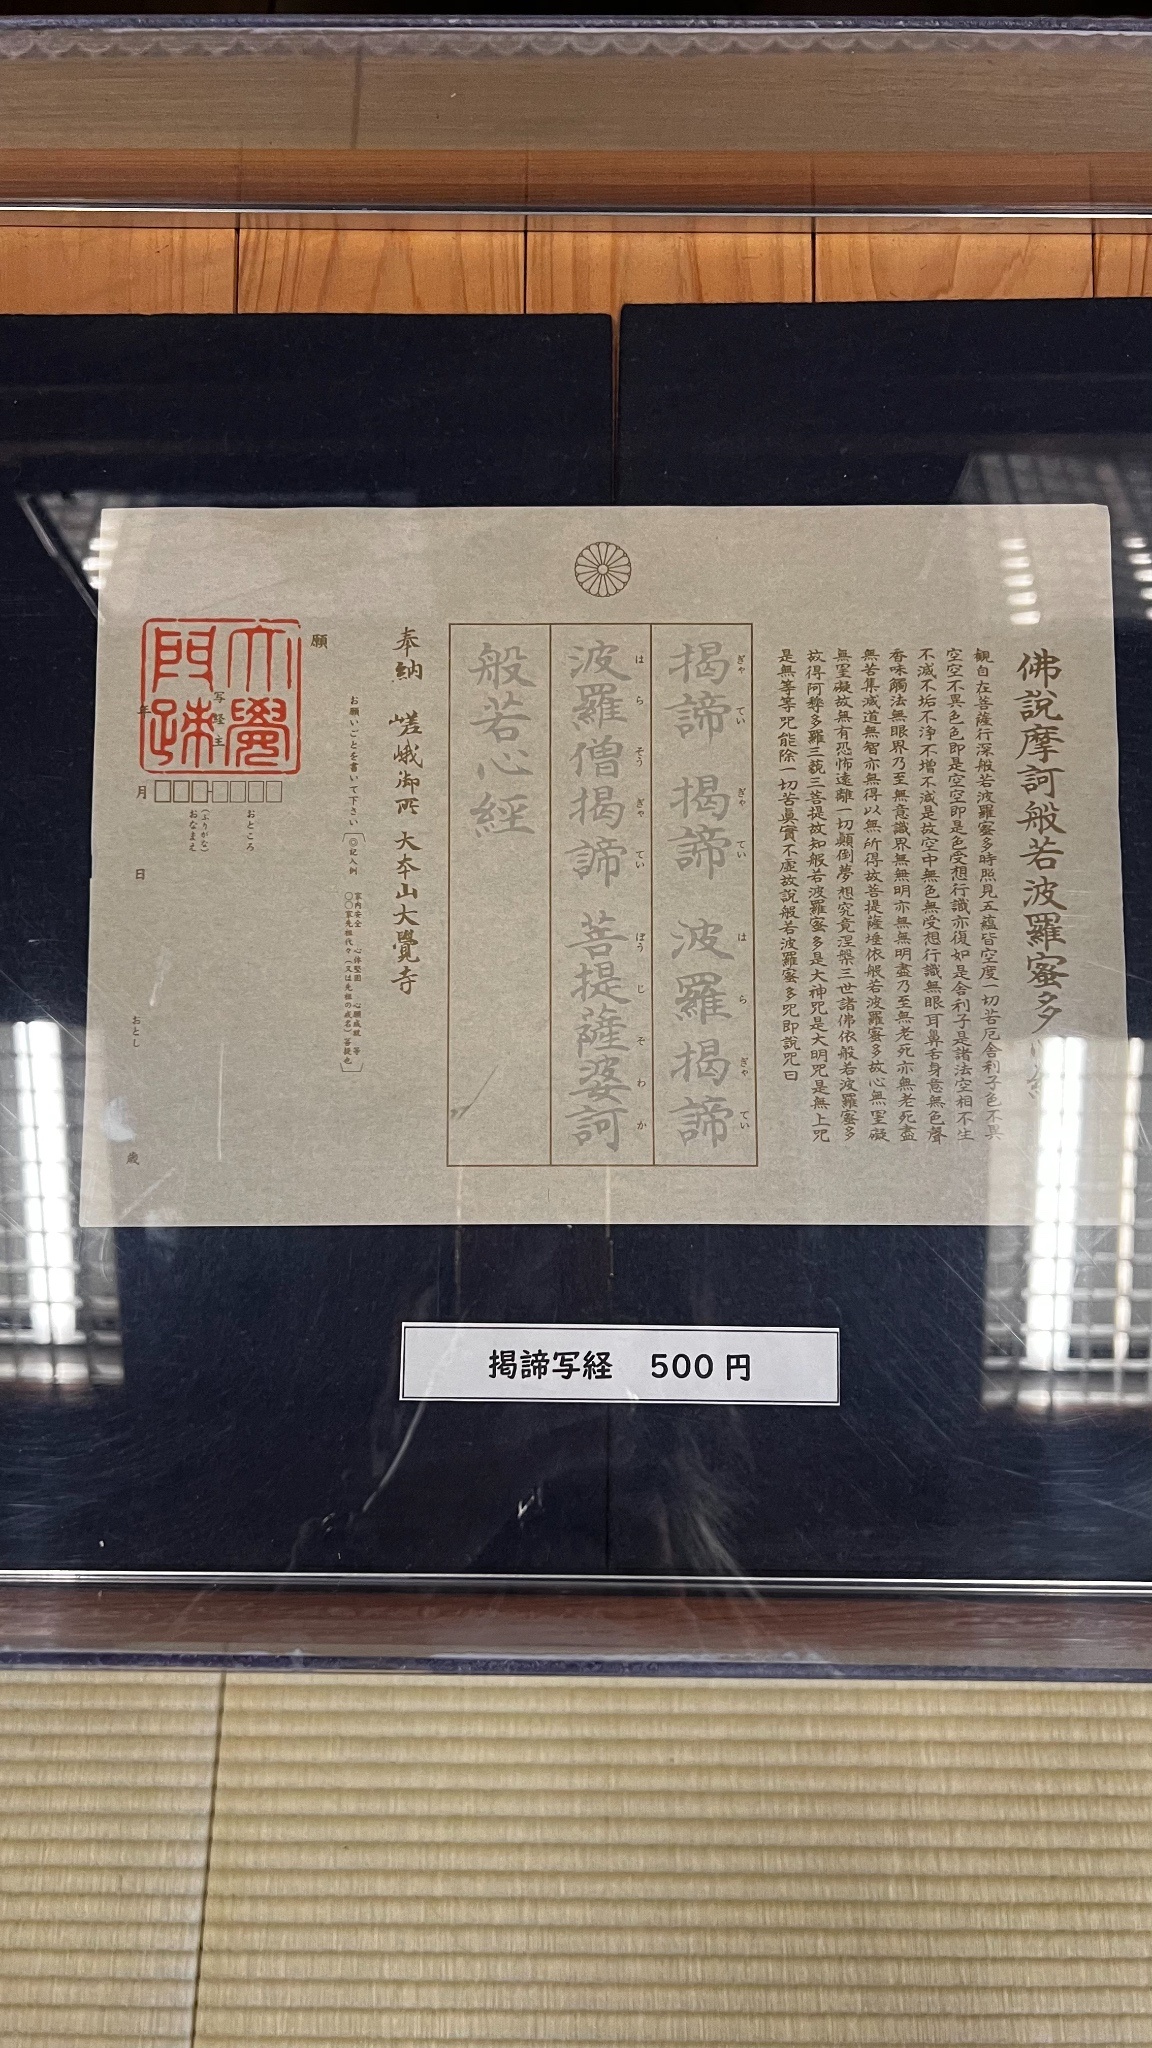 佛說摩訶般若波羅蜜多心經
観自在菩薩行深般若波羅蜜多時照見五蘊皆空度一切苦厄舎利子色不異
空空不異色色即是空空即是色受想行識亦復如是舎利子是諸法空相不生
不滅不垢不浄不增不減是故空中無色無受想行識無眼耳鼻舌身意無色聲
香味觸法無眼界乃至無意識界無無明亦無無明盡乃至無老死亦無老死盡
無苦集滅道無智亦無得以無所得故菩提薩埵依般若波羅蜜多故心無罣礙
無罣礙故無有恐怖遠離一切顛倒夢想究竟涅槃三世諸佛依般若波羅蜜多
故得阿耨多羅三藐三菩提故知般若波羅蜜多是大神咒是大明咒是無上咒
是無等等咒能除一切苦眞實不虛故說般若波羅蜜多咒即說咒曰
揭諦 揭諦 波羅揭諦
ぎゃ てい ぎゃ てい は ら ぎゃ てい
波羅僧揭諦 菩提薩婆訶
は ら そう ぎゃ てい ぼう じ そ わ か
般若心經
奉納 嵯峨御所 大本山大覺寺
お願いごとを書いて下さい
◎記入例
家内安全 心体堅固 心願成就 等
〇〇家先祖代々(又は先祖の戒名)菩提也
願
大覺
門跡
写経主
おところ
(ふりがな)
おなまえ
年 月 日
おとし 歳
掲諦写経 500円